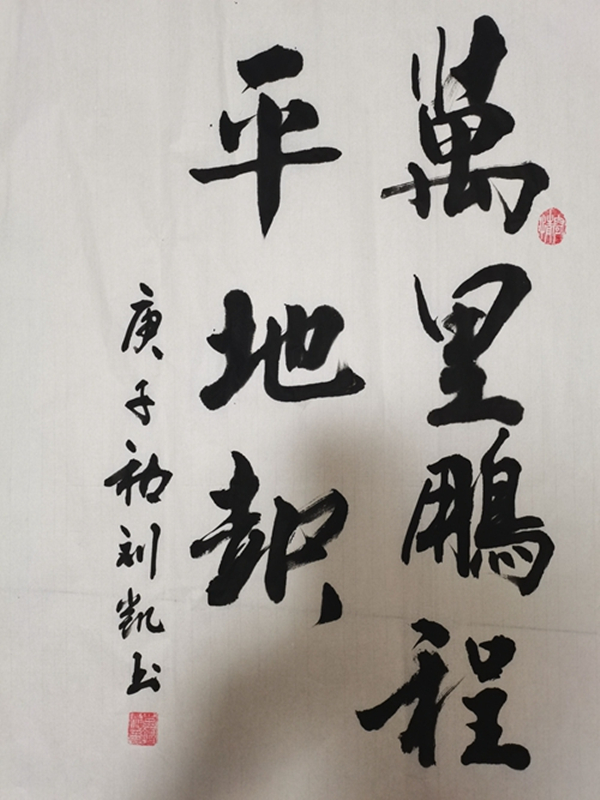 萬里鵬程
平地起
庚子刘凯书